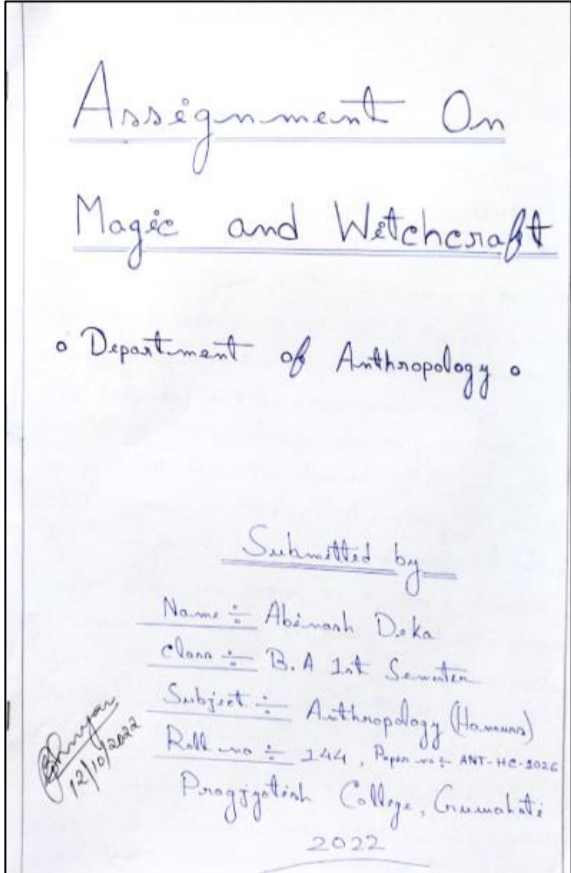 Assignment On
Magic and Witchcraft
Department of Anthropology
Submitted by
Name ÷ Abinash Deka
Class ÷ B.A 1st Semester
Subject ÷ Anthropology (Honours)
Roll no ÷ 144, Paper no ÷ ANT-HC-1026
Pragjyotish College, Guwahati
2022
12/10/2022